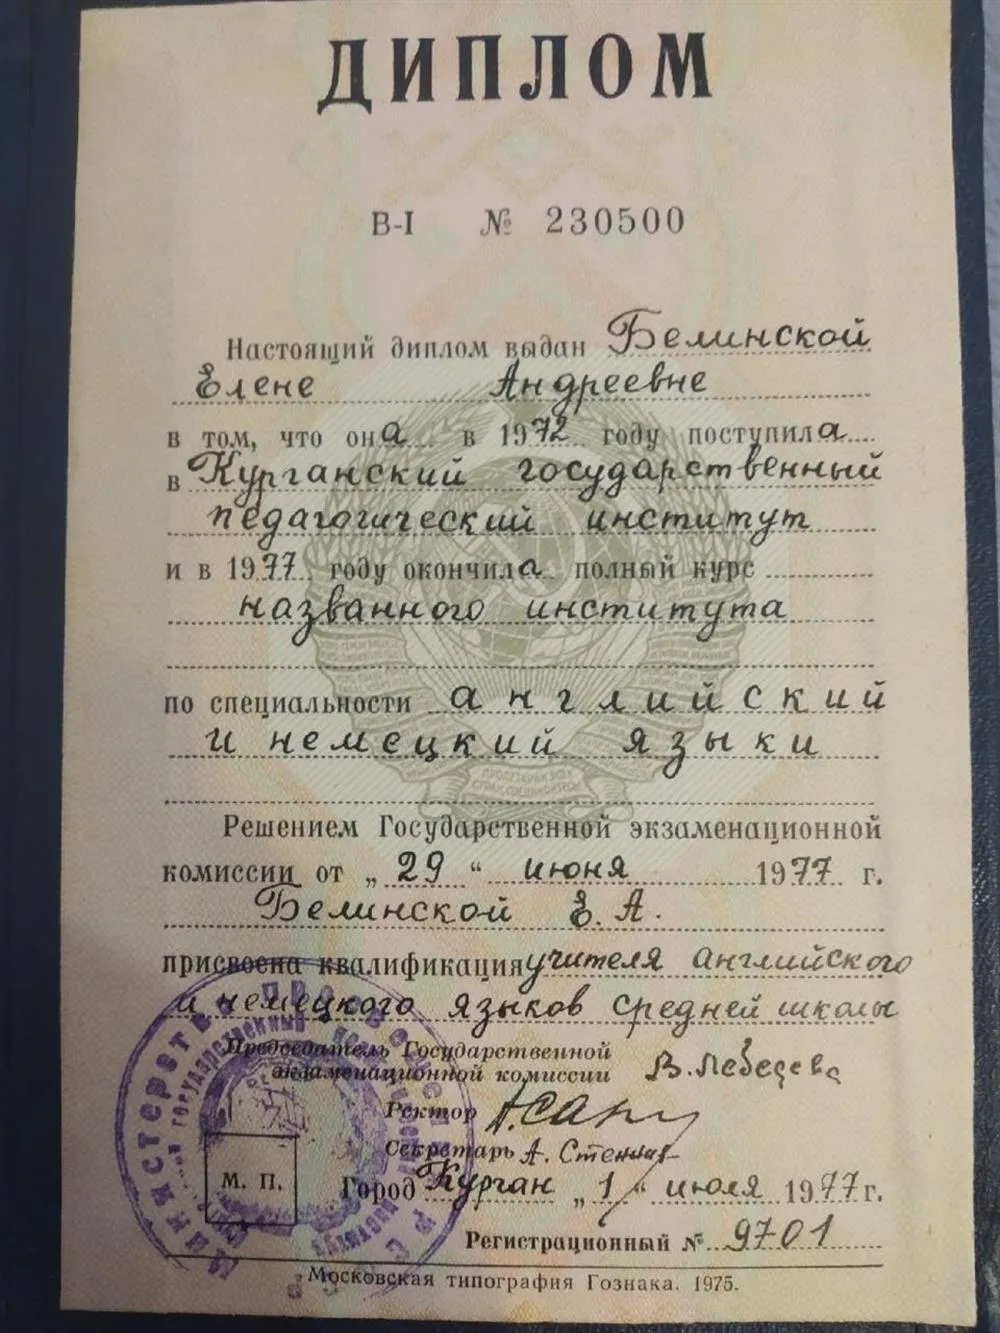 ДИПЛОМ
В-I № 230500
Настоящий диплом выдан Белинской
Елене Андреевне
в том, что она в 1972 году поступила
в Курганский государственный
педагогический институт
и в 1977 году окончила полный курс
названного института
по специальности английский
и немецкий языки
ПРОЛЕТАРИИ ВСЕХ
СТРАН, СОЕДИНЯЙТЕСЬ!
Решением Государственной экзаменационной
комиссии от „29“ июня 1977 г.
Белинской Е. А.
присвоена квалификация учителя английского
и немецкого языков средней школы
Председатель Государственной
экзаменационной комиссии В. Лебедева
Ректор
Секретарь А.
М. П.
Город Курган „1“ июля 1977 г.
Регистрационный № 9701
Московская типография Гознака. 1975.
Министерство просвещения РСФСР